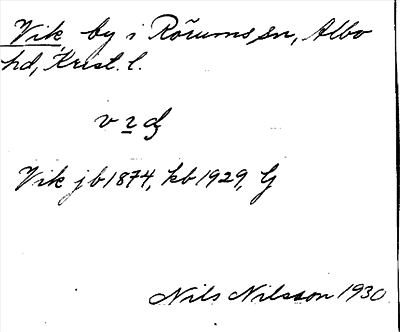 Vik, by i Rõrums sn, Albo
hd, Krist. l.
v
Vik jb 1874, kb 1929, G
Nils Nilsson 1930